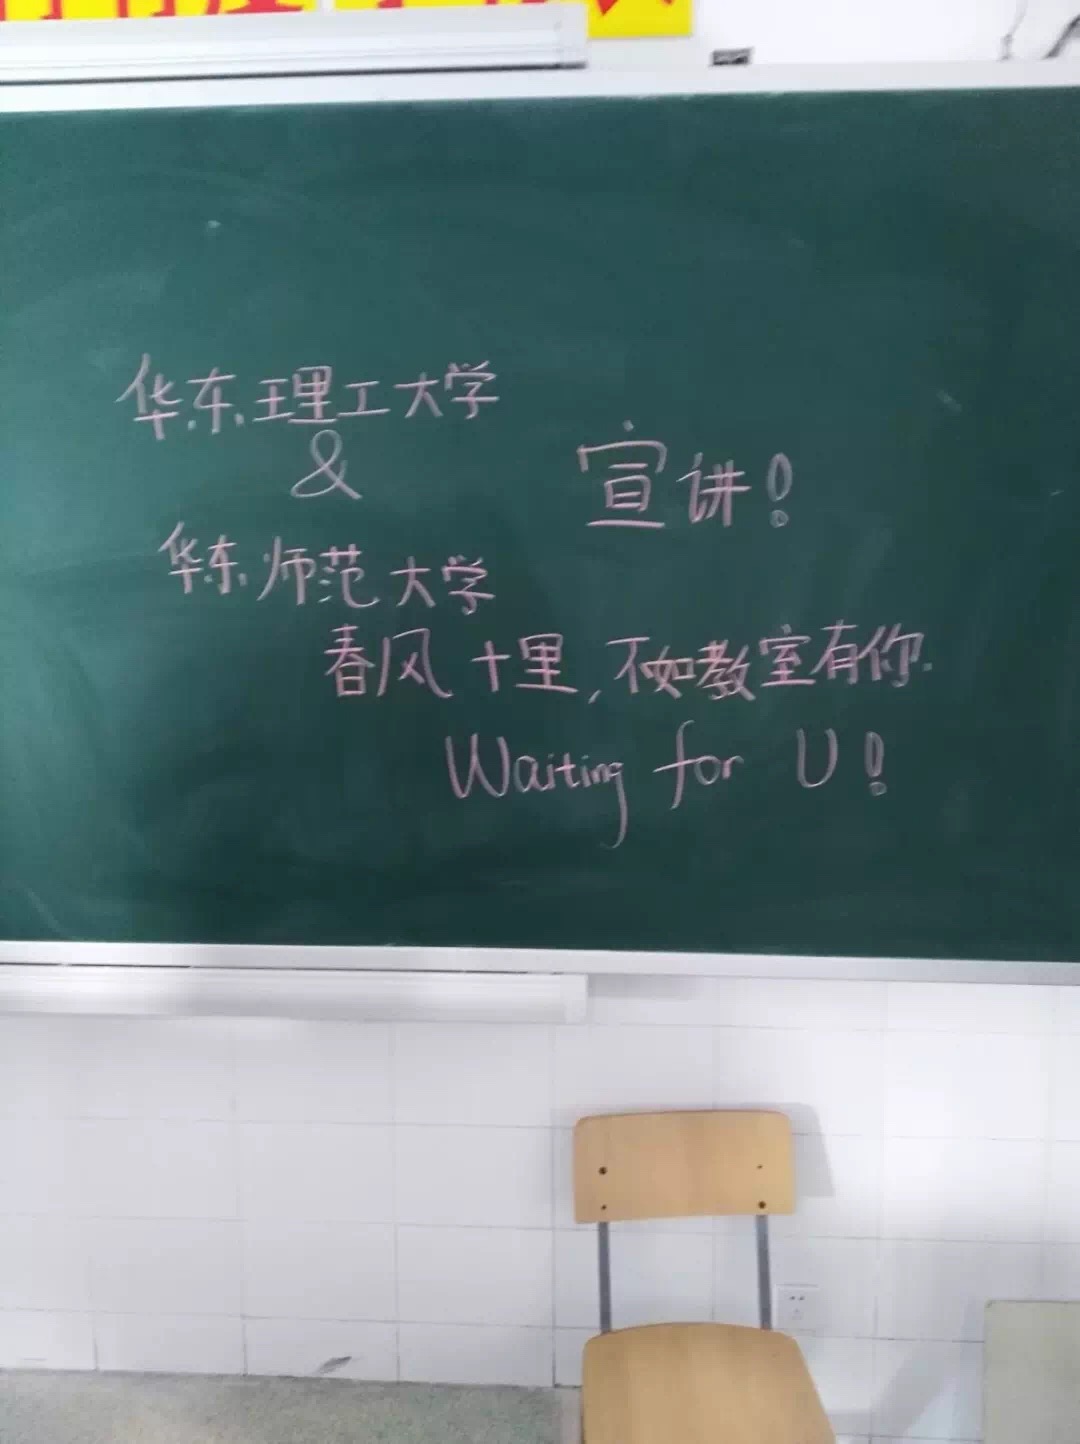 华东理工大学
&
宣讲！
华东师范大学
春风十里，不如教室有你.
Waiting for U！